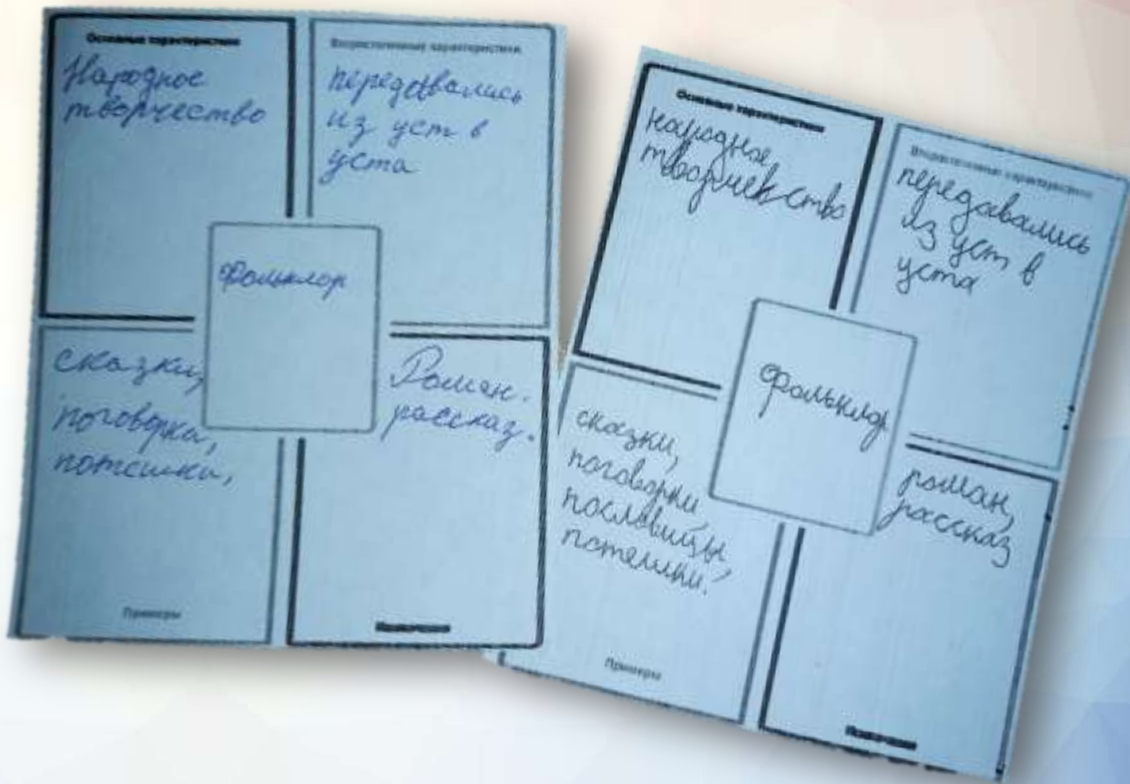 Основные характеристики
Народное
творчество
Второстепенные характеристики
передавались
из уст в
уста
Фольклор
сказки,
поговорки,
потешки,
Примеры
Роман.
рассказ.
Основные характеристики
народное
творчевство
Второстепенные характеристики
передавались
из уст в
уста
Фольклор
сказки,
поговорки,
пословицы,
потешки.
Примеры
роман,
рассказ